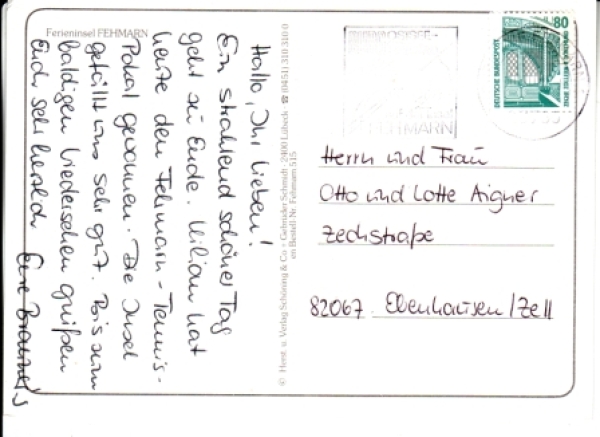 Ferieninsel FEHMARN
Hallo, Ihr Lieben!
Ein strahlend schöner Tag
geht zu Ende. Kilian hat
heute den Fehmarn-Tennis-
Pokal gewonnen. Die Insel
gefällt uns sehr gut. Bis zum
baldigen Wiedersehen grüßen
Euch sehr herzlich Eure
© Herst. u. Verlag Schöning & Co + Gebrüder Schmidt · 2400 Lübeck · ☎ (0451) 310 310-0
Bestell-Nr. Fehmarn 515
FEHMARN
80
DEUTSCHE BUNDESPOST
Herrn und Frau
Otto und Lotte Aigner
Zechstraße
82067 Ebenhausen/Zell